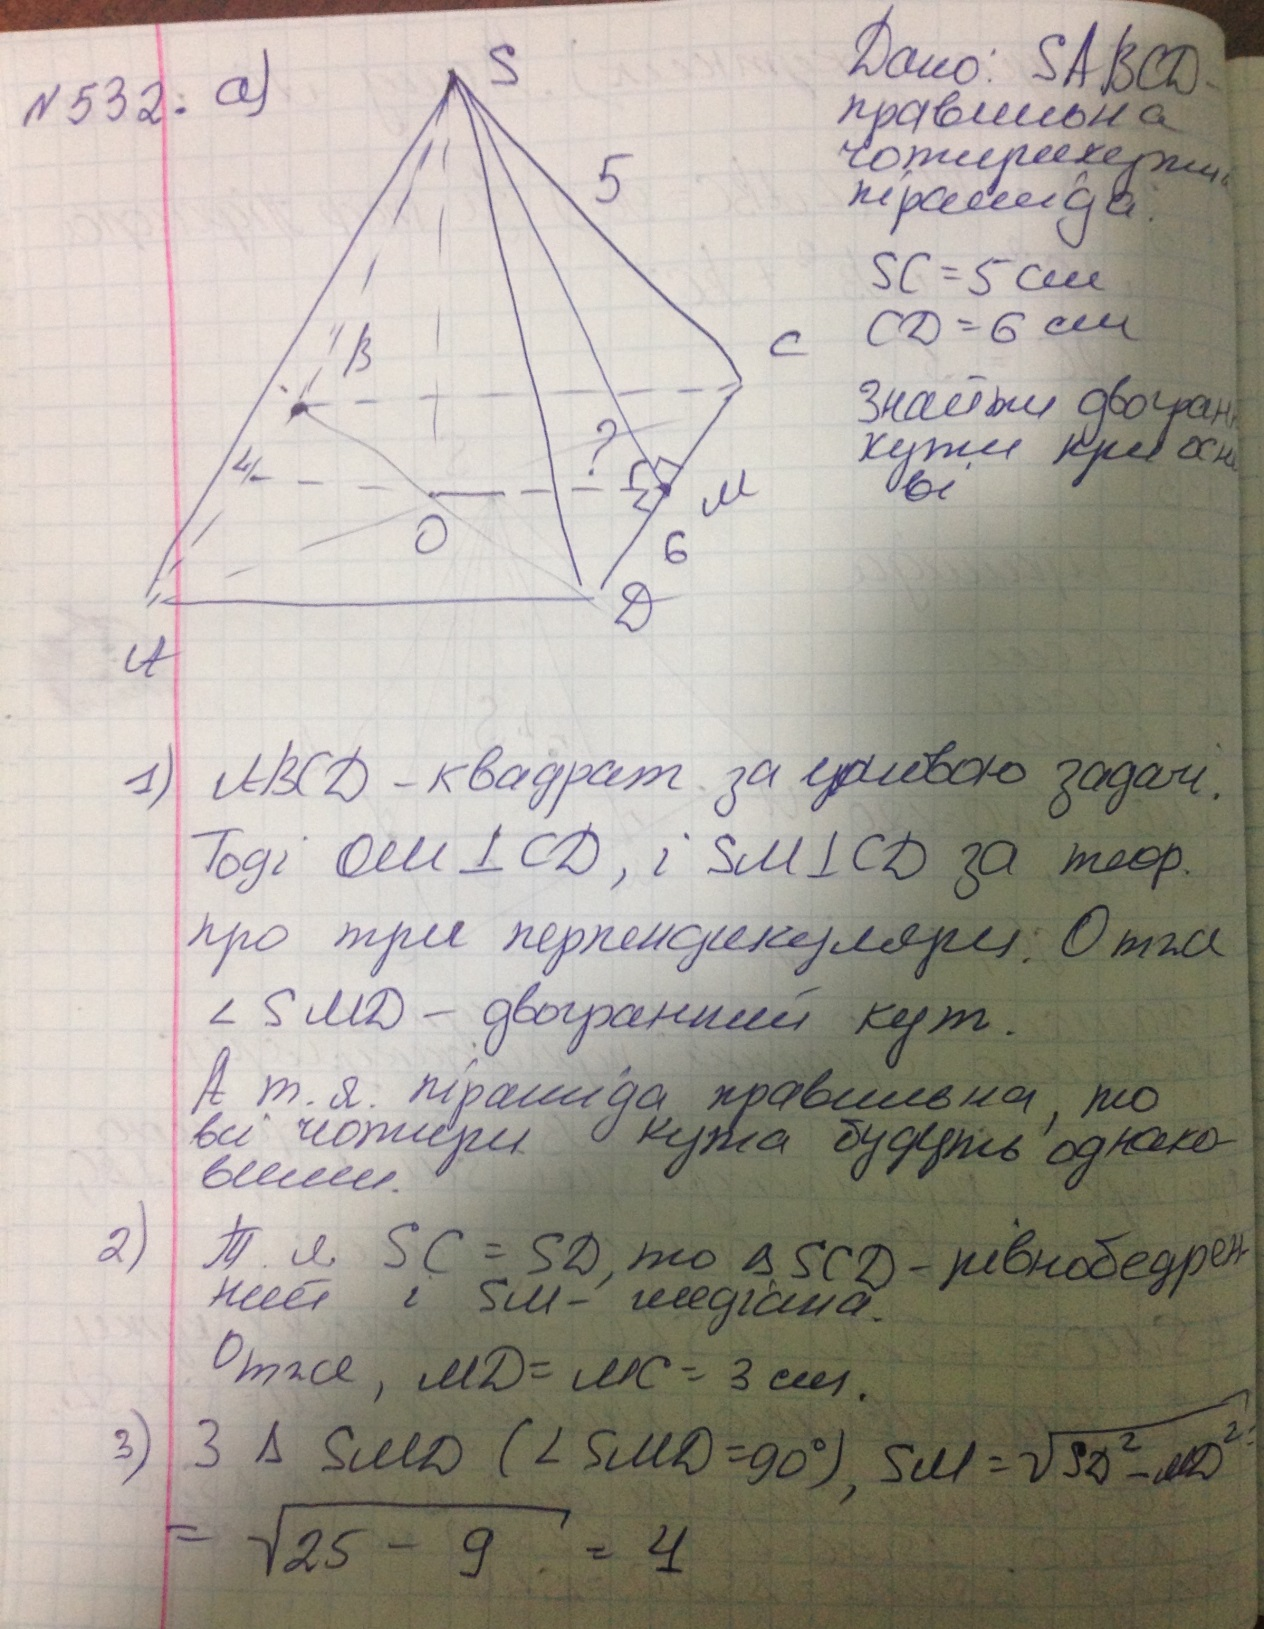 N 532. а)
S
Дано: SABCD-
правильна
чотирикутн
піраміда.
5
SC = 5 см
CD = 6 см
C
B
Знайти двогран
кути при осн
ві
?
M
O
6
D
A
1) ABCD - квадрат за умовою задачі.
Тоді OM ⊥ CD, і SM ⊥ CD за теор.
про три перпендикуляри. Отже
∠ SMD - двогранний кут.
А т.я. піраміда правильна, то
всі чотири кута будуть однако-
вими.
2) Т. я. SC = SD, то Δ SCD - рівнобедрен-
ний і SM - медіана.
Отже, MD = MC = 3 см.
3) З Δ SMD (∠ SMD = 90°), SM = √SD² - MD² =
= √25 - 9 = 4